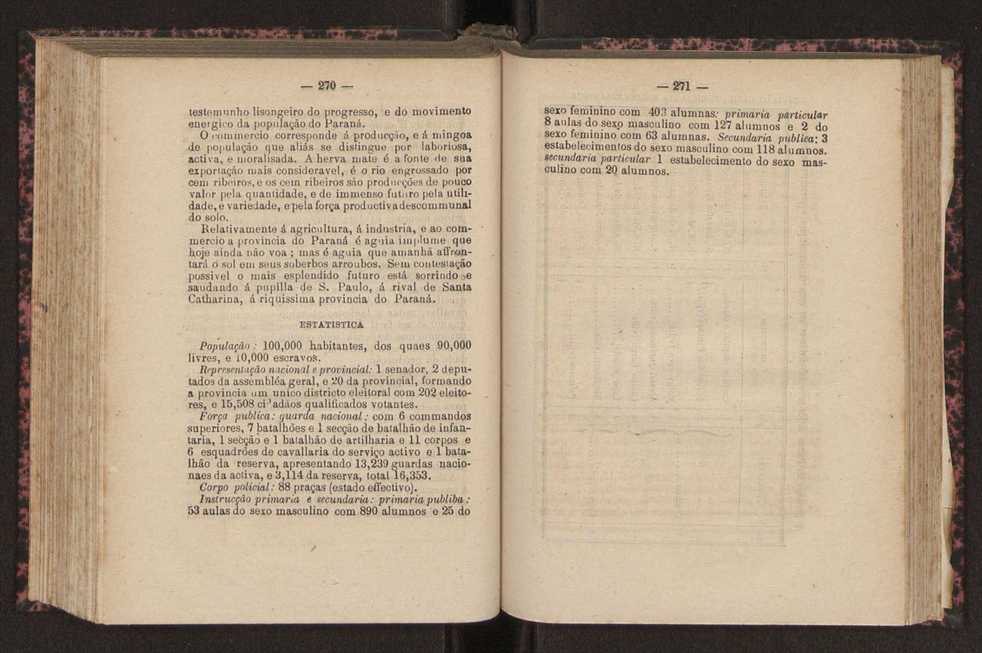 — 270 —
testemunho lisongeiro do progresso, e do movimento
energico da população do Paraná.
O commercio corresponde á producção, e á mingoa
de população que aliás se distingue por laboriosa,
activa, e moralisada. A herva mate é a fonte de sua
exportação mais consideravel, é o rio engrossado por
cem ribeiros, e os cem ribeiros são producções de pouco
valor pela quantidade, e de immenso futuro pela utili-
dade, e variedade, e pela força productiva descommunal
do solo.
Relativamente á agricultura, á industria, e ao com-
mercio a provincia do Paraná é aguia implume que
hoje ainda não voa ; mas é aguia que amanhã affron-
tará o sol em seus soberbos arroubos. Sem contestação
possivel o mais esplendido futuro está sorrindo e
saudando á pupilla de S. Paulo, á rival de Santa
Catharina, á riquissima provincia do Paraná.
ESTATISTICA
População : 100,000 habitantes, dos quaes 90,000
livres, e 10,000 escravos.
Representação nacional e provincial: 1 senador, 2 depu-
tados da assembléa geral, e 20 da provincial, formando
a provincia um unico districto eleitoral com 202 eleito-
res, e 15,508 cidadãos qualificados votantes.
Força publica: guarda nacional: com 6 commandos
superiores, 7 batalhões e 1 secção de batalhão de infan-
taria, 1 secção e 1 batalhão de artilharia e 11 corpos e
6 esquadrões de cavallaria do serviço activo e 1 bata-
lhão da reserva, apresentando 13,239 guardas nacio-
naes da activa, e 3,114 da reserva, total 16,353.
Corpo policial: 88 praças (estado effectivo).
Instrucção primaria e secundaria: primaria publiba :
53 aulas do sexo masculino com 890 alumnos e 25 do
— 271 —
sexo feminino com 403 alumnas: primaria particular
8 aulas do sexo masculino com 127 alumnos e 2 do
sexo feminino com 63 alumnas. Secundaria publica: 3
estabelecimentos do sexo masculino com 118 alumnos.
secundaria particular 1 estabelecimento do sexo mas-
culino com 20 alumnos.